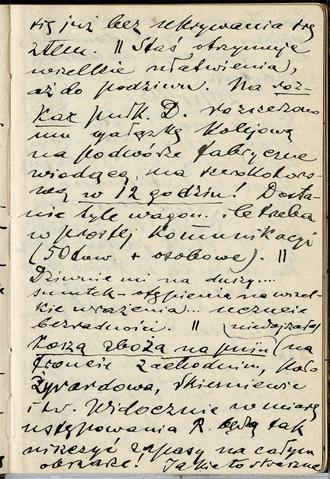 się już bez ukrywania się
złem. || Staś otrzymuje
wielkie ułatwienia,
aż do podziwu. Na roz-
kaz pułk. D. rozszerzono
mu gałązkę kolejową
na podwórze fabryczne
wiodącą, na szerokotoro-
wą w 12 godzin! Dosta-
nie tyle wagon. ile trzeba
w prostej komunikacji
(50 tow. + osobowe). ||
Dziwnie mi na duszy...
smutek - otępienie na wiel-
kie wrażenia... uczucie
bezradności. ||
Koszą zboża na pniu (na
froncie Zachodnim, koło
Żyrardowa, Skierniewic
i t.d. Widocznie w miarę
ustępowania R. będą tak
niszczyć zapasy na całym
obszarze! Jakie to straszne